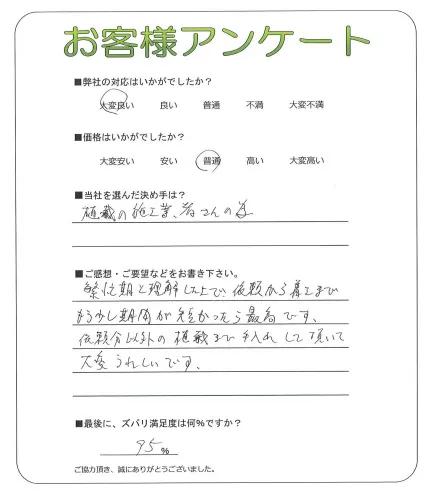 お客様アンケート
■弊社の対応はいかがでしたか?
大変良い 良い 普通 不満 大変不満
■価格はいかがでしたか?
大変安い 安い 普通 高い 大変高い
■当社を選んだ決め手は?
植栽の施工業者さんの為
■ご感想・ご要望などをお書き下さい。
繁忙期と理解した上で、依頼から着工まで
もう少し期間が短かったら最高です。
依頼分以外の植栽まで手入れして頂いて
大変うれしいです。
■最後に、ズバリ満足度は何%ですか?
95%
ご協力頂き、誠にありがとうございました。